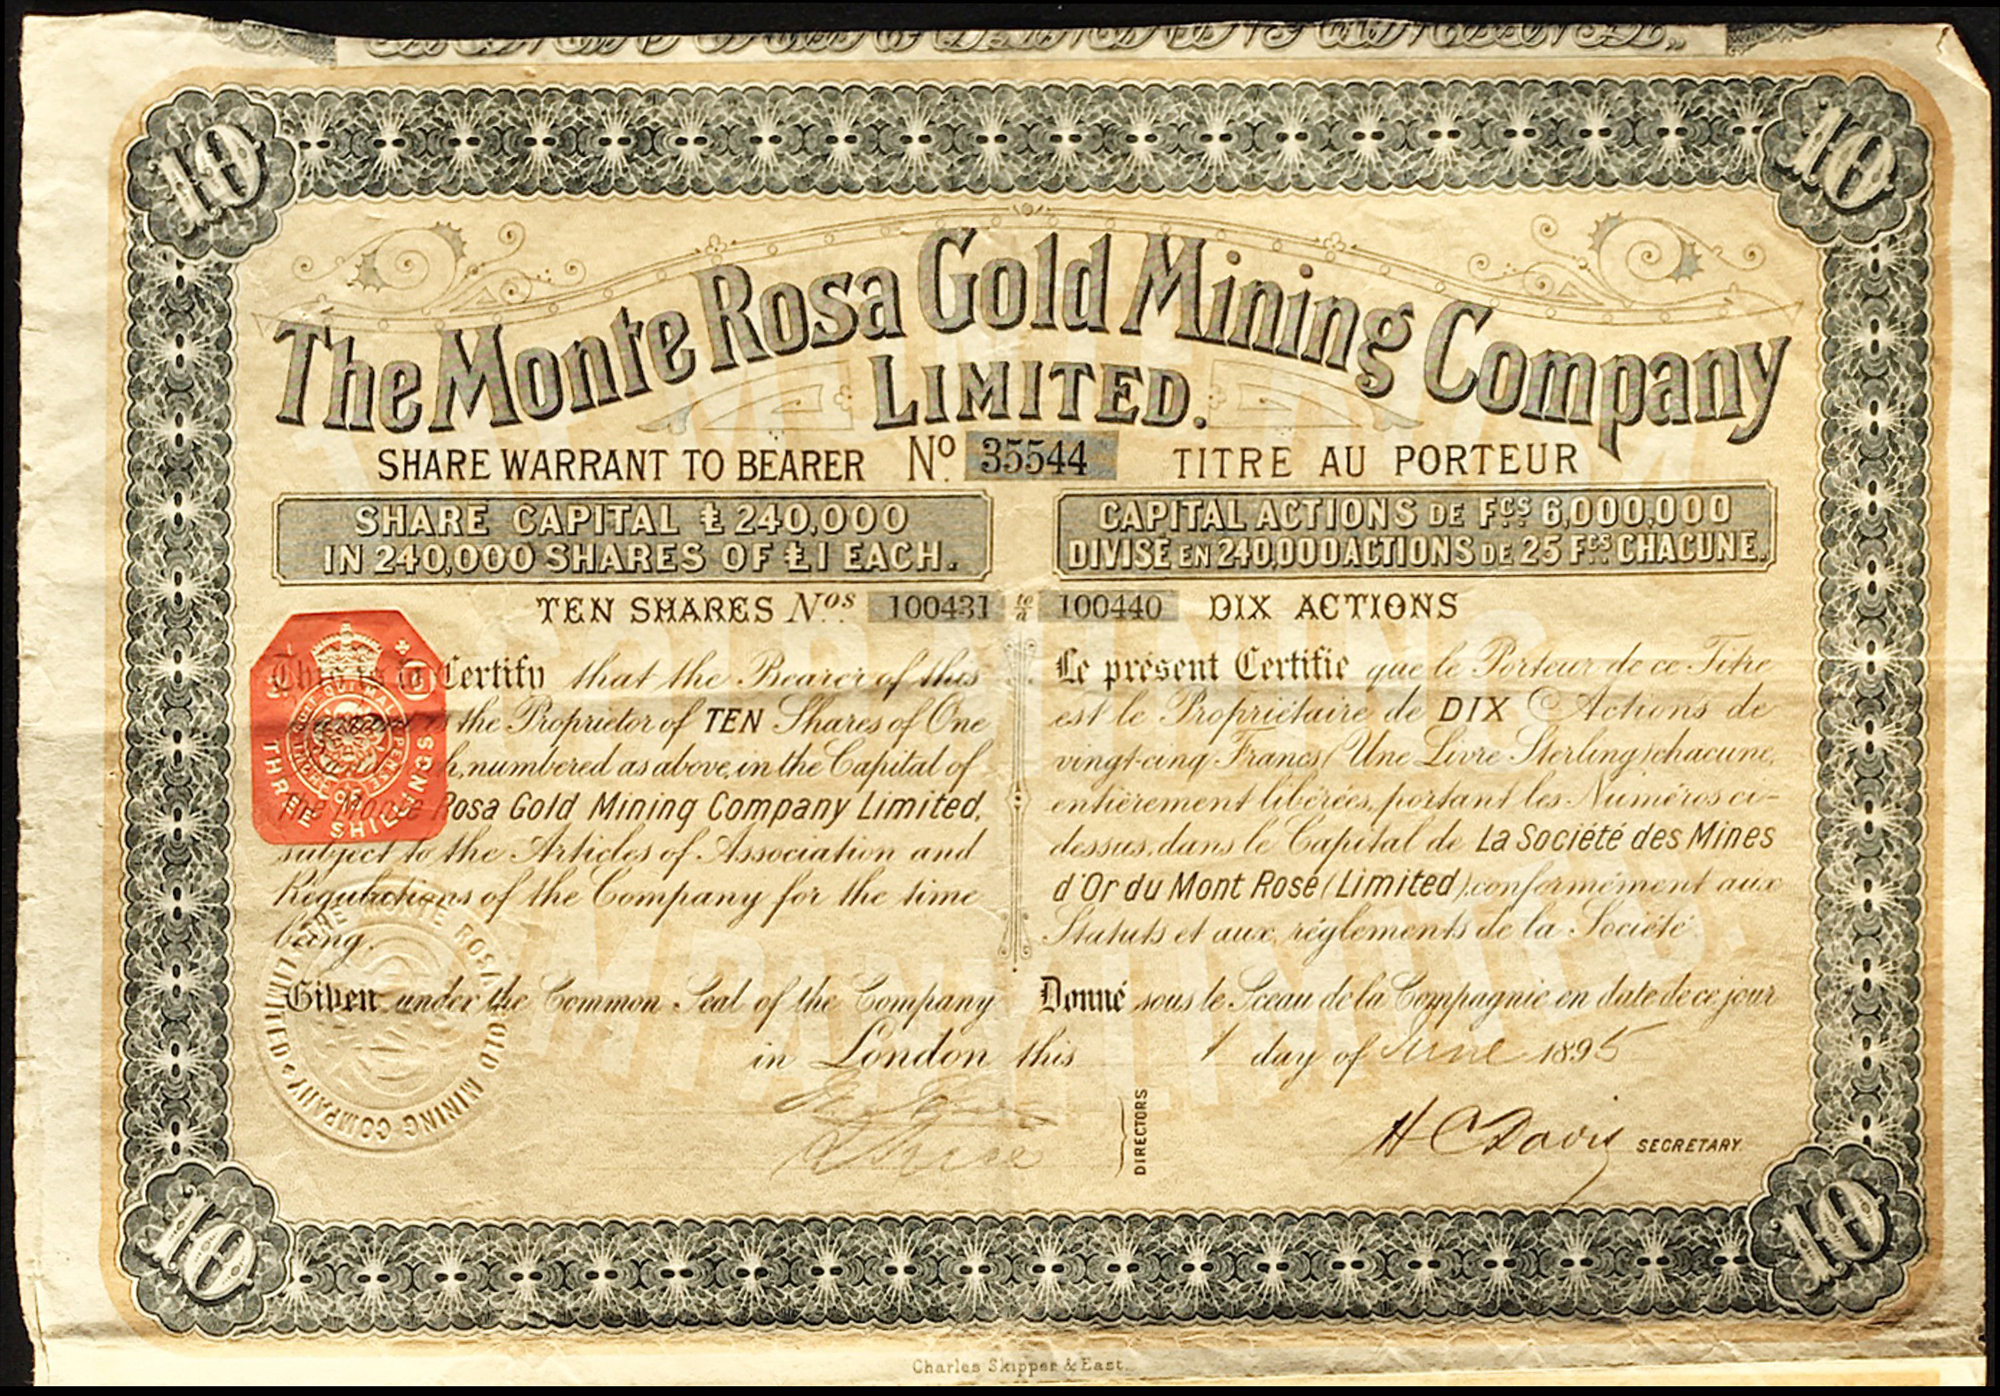 10
10
The Monte Rosa Gold Mining Company
LIMITED.
SHARE WARRANT TO BEARER No. 35544 TITRE AU PORTEUR
SHARE CAPITAL £240,000
IN 240,000 SHARES OF £1 EACH.
CAPITAL ACTIONS DE FCS 6,000,000
DIVISÉ EN 240,000 ACTIONS DE 25 FCS CHACUNE.
TEN SHARES Nos. 100431 to à 100440 DIX ACTIONS
This is to Certify that the Bearer of this
the Proprietor of TEN Shares of One
numbered as above, in the Capital of
The Monte Rosa Gold Mining Company Limited,
subject to the Articles of Association and
Regulations of the Company for the time
being.
Given under the Common Seal of the Company
Le présent Certifie que le Porteur de ce Titre
est le Propriétaire de DIX Actions de
vingt-cinq Francs (Une Livre Sterling) chacune,
entièrement libérées, portant les Numéros ci-
dessus, dans le Capital de La Société des Mines
d'Or du Mont Rosé (Limited), conformément aux
Statuts et aux règlements de la Société
Donné sous le Sceau de la Compagnie en date de ce jour
in London this 1 day of June 1895
DIRECTORS
H C Davis SECRETARY.
THREE SHILLINGS
HONI SOIT QUI MAL Y PENSE
THE MONTE ROSA GOLD MINING COMPANY LIMITED
10
10
Charles Skipper & East.